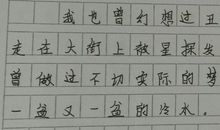 我也曾幻想过丑
走在大街上被星探发
曾做过不切实际的梦
一盆又一盆的冷水。